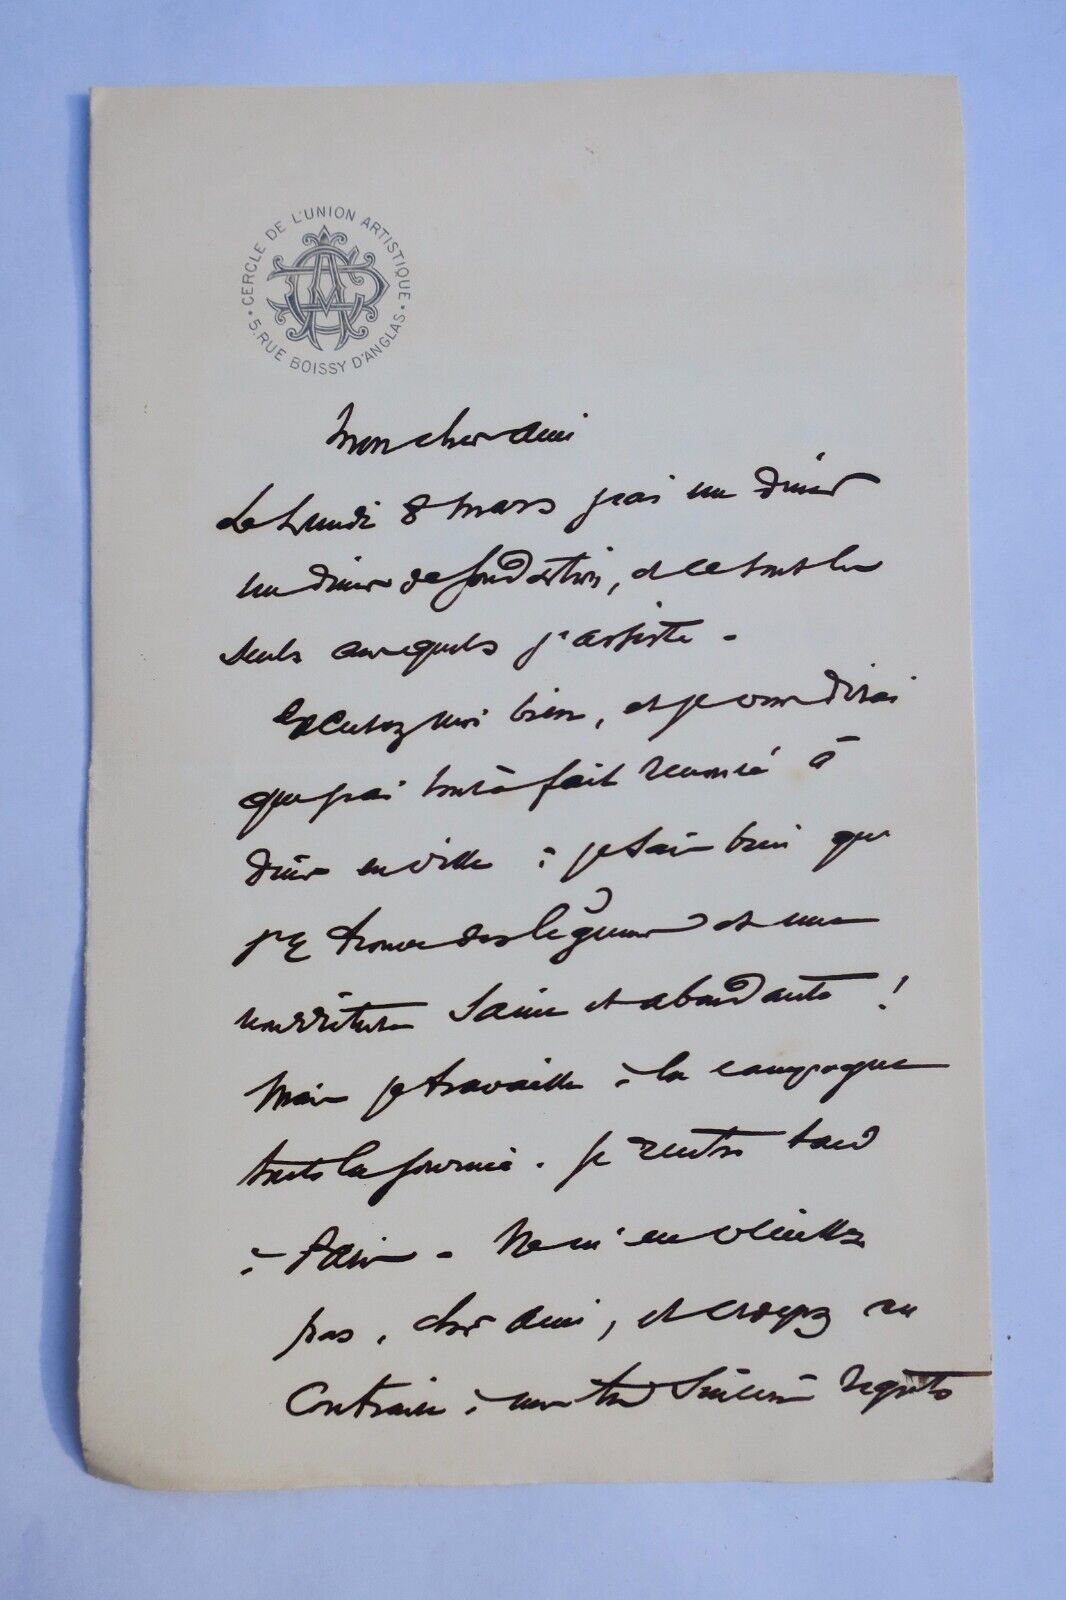 CERCLE DE L'UNION ARTISTIQUE
5, RUE BOISSY D'ANGLAS
Mon cher ami
Le Lundi 8 mars j'ai un diner
un diner de fondation, et ce sont les
seuls auxquels j'assiste -
Ecoutez moi bien, et je vous dirai
que j'ai tout à fait renoncé à
diner en ville : je sais bien que
j'y trouve des légumes et une
nourriture saine et abondante !
Mais je travaille à la campagne
toute la journée. Je rentre tard
à Paris - Ne m'en veuillez
pas, cher ami, et croyez au
Contraire à mes très sincères regrets